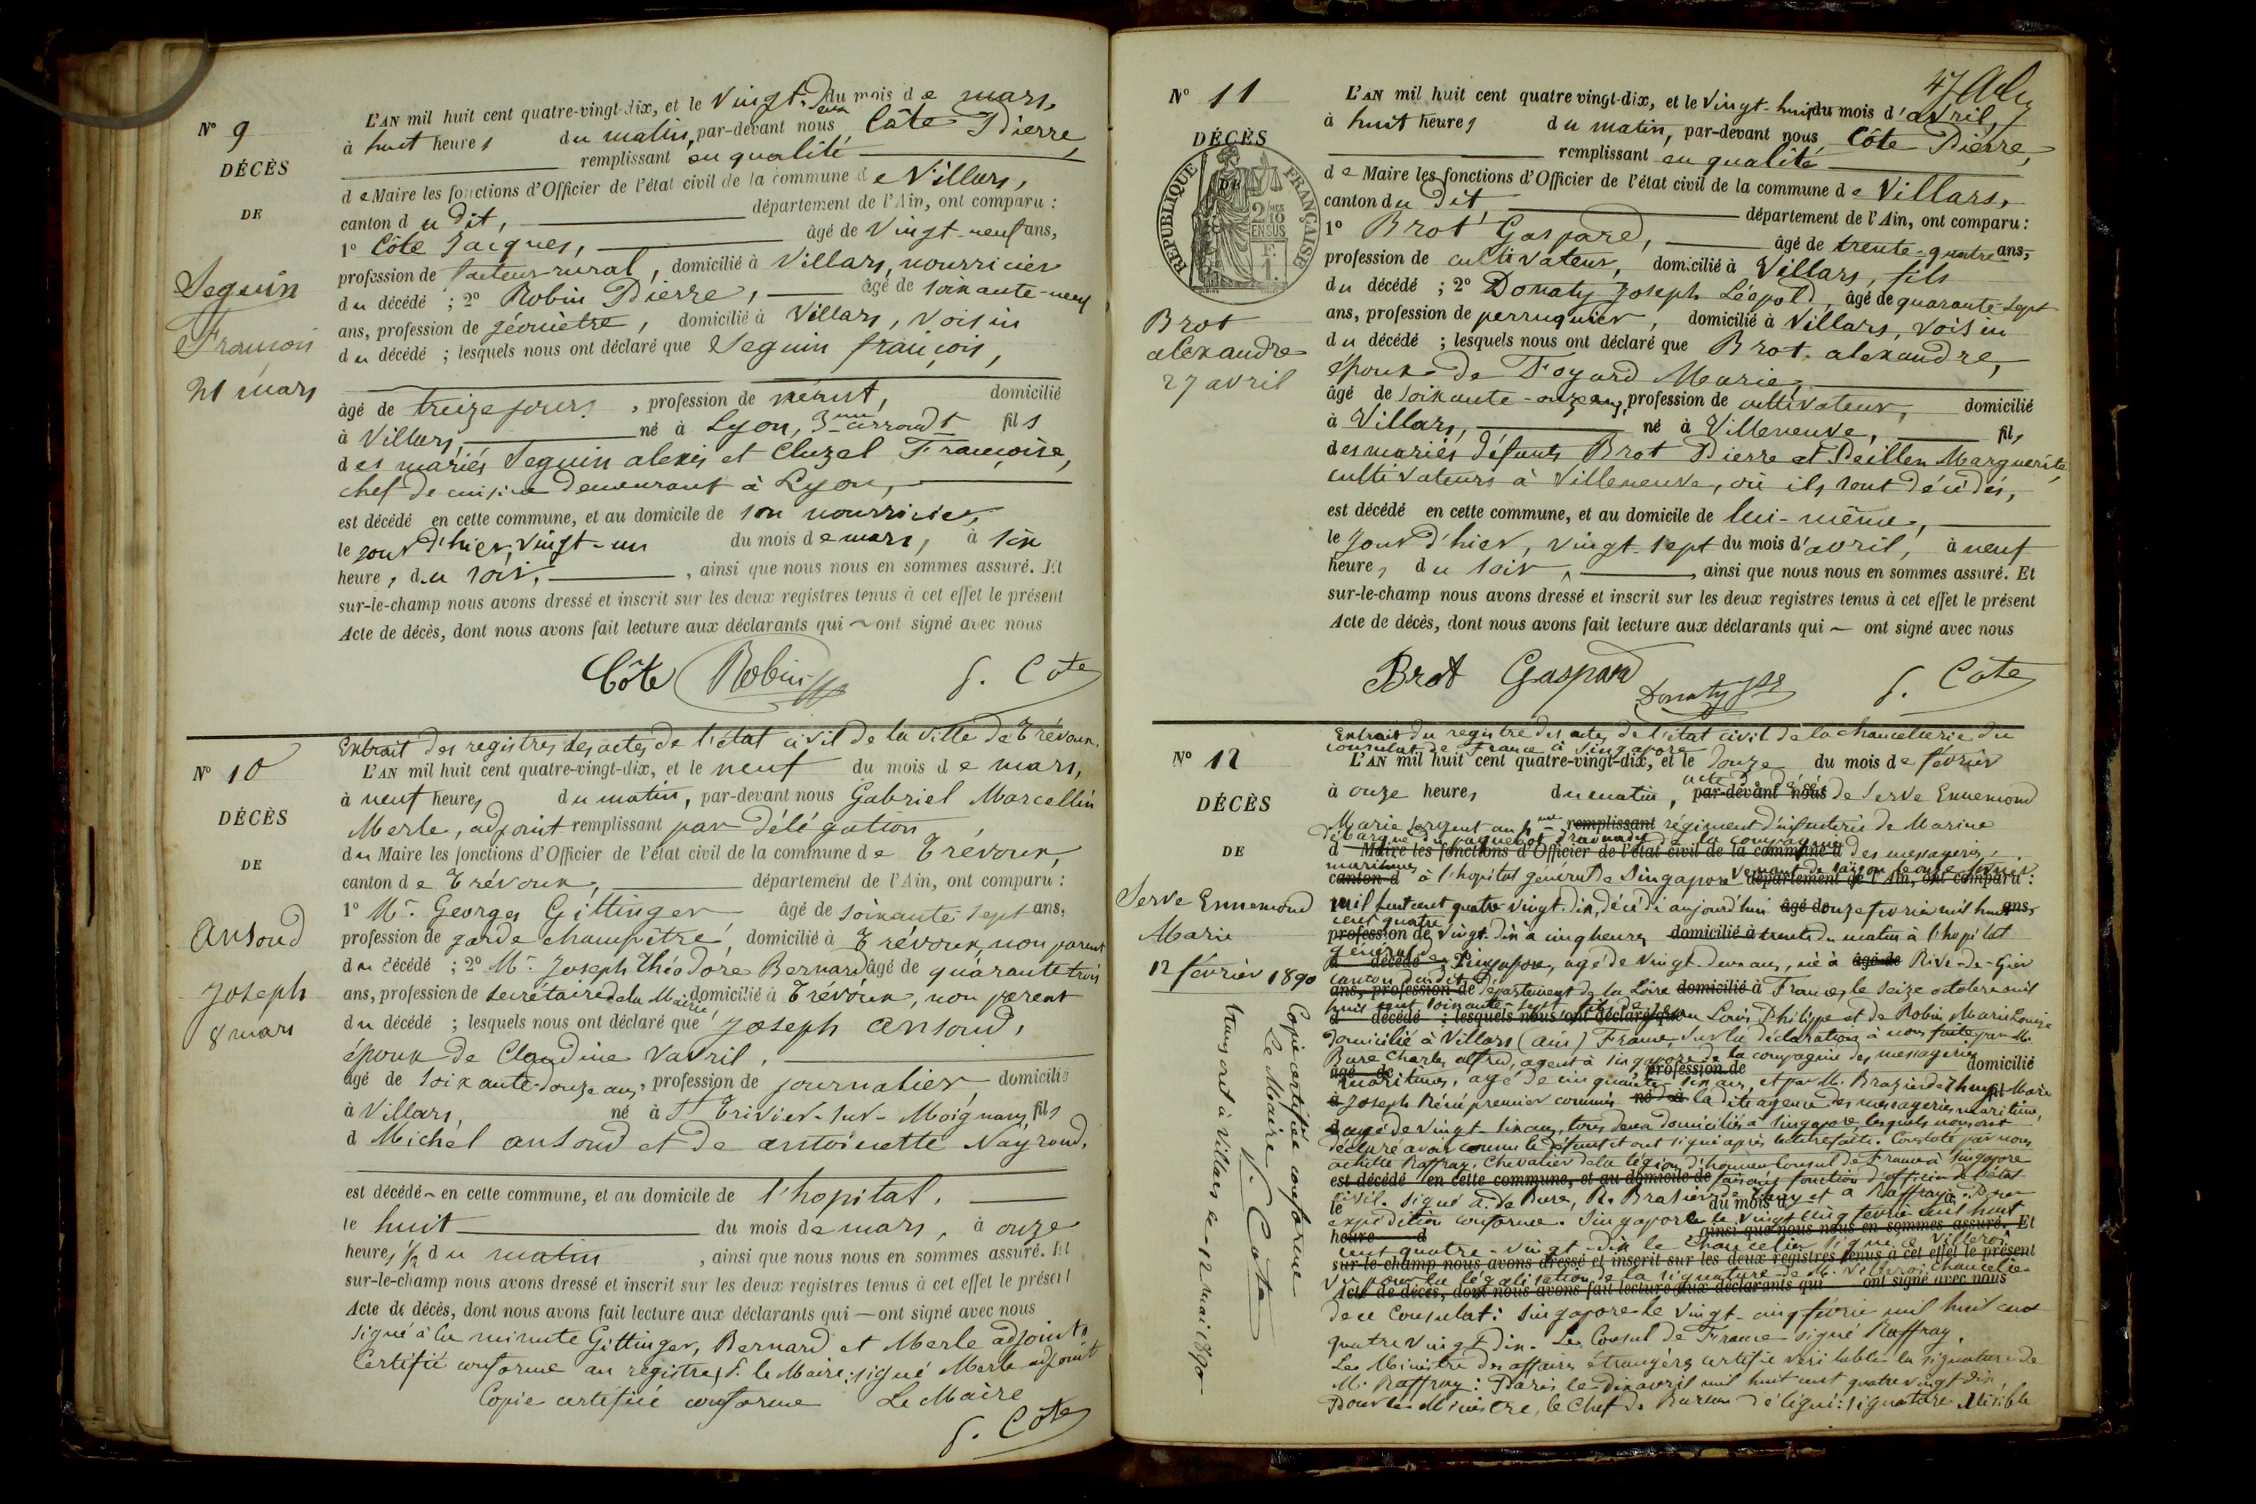 N° 9
DÉCÈS
DE
Seguin
François
21 mars
L'AN mil huit cent quatre-vingt-dix, et le Vingt-deux du mois de mars,
à huit heures du matin, par-devant nous Côte Pierre,
remplissant en qualité
de Maire les fonctions d'Officier de l'état civil de la commune de Villars,
canton du dit, département de l'Ain, ont comparu :
1° Côte Jacques, âgé de Vingt-neuf ans,
profession de facteur-rural, domicilié à Villars, nourricier
du décédé ; 2° Robin Pierre, âgé de soixante-neuf
ans, profession de géomètre, domicilié à Villars, voisin
du décédé ; lesquels nous ont déclaré que Seguin françois,
âgé de treize jours, profession de néant, domicilié
à Villars, né à Lyon, 3me arrondt fils
des mariés Seguin alexis et Cluzel Françoise,
chef de cuisine demeurant à Lyon,
est décédé en cette commune, et au domicile de son nourricier,
le jour d'hier, vingt-un du mois de mars, à six
heures, du soir, ainsi que nous nous en sommes assuré. Et
sur-le-champ nous avons dressé et inscrit sur les deux registres tenus à cet effet le présent
Acte de décès, dont nous avons fait lecture aux déclarants qui ont signé avec nous
Côte Robin P. Côte
Extrait des registres des actes de l'état civil de la Ville de Trévoux.
N° 10
DÉCÈS
DE
Ansoud
Joseph
8 mars
L'AN mil huit cent quatre-vingt-dix, et le neuf du mois de mars,
à neuf heures du matin, par-devant nous Gabriel Marcellin
Merle, adjoint remplissant par délégation
du Maire les fonctions d'Officier de l'état civil de la commune de Trévoux,
canton de Trévoux, département de l'Ain, ont comparu :
1° Mr. Georges Gittinger âgé de soixante-sept ans,
profession de garde champêtre, domicilié à Trévoux, non parent
du décédé ; 2° Mr. Joseph Théodore Bernard âgé de quarante trois
ans, profession de secrétaire de la Mairie domicilié à Trévoux, non parent
du décédé ; lesquels nous ont déclaré que Joseph Ansoud,
époux de Claudine Vavril,
âgé de soixante-douze ans, profession de journalier domicilié
à Villars, né à St Trivier-sur-Moignans, fils
d Michel ansoud et de antoinette Nayrond,
est décédé en cette commune, et au domicile de l'hopital,
le huit du mois de mars, à onze
heures 1/2 du matin, ainsi que nous nous en sommes assuré. Et
sur-le-champ nous avons dressé et inscrit sur les deux registres tenus à cet effet le présent
Acte de décès, dont nous avons fait lecture aux déclarants qui — ont signé avec nous
signé à la minute Gittinger, Bernard et Merle adjoint.
Certifié conforme au registre, P. le Maire : signé Merle adjoint
Copie certifiée conforme Le Maire
P. Côte
N° 11
DÉCÈS
DE
RÉPUBLIQUE FRANÇAISE
2/10 EN SUS
Brot
alexandre
27 avril
L'AN mil huit cent quatre vingt-dix, et le Vingt-huit du mois d'avril,
à huit heures du matin, par-devant nous Côte Pierre,
remplissant en qualité
de Maire les fonctions d'Officier de l'état civil de la commune de Villars,
canton du dit département de l'Ain, ont comparu :
1° Brot Gaspard, âgé de trente-quatre ans,
profession de cultivateur, domicilié à Villars, fils
du décédé ; 2° Donaty Joseph Léopold, âgé de quarante-sept
ans, profession de perruquier, domicilié à Villars, voisin
du décédé ; lesquels nous ont déclaré que Brot alexandre,
époux de Foyard Marie,
âgé de soixante-onze ans, profession de cultivateur, domicilié
à Villars, né à Villeneuve, fils
des mariés défunts Brot Pierre et Peillen Marguerite,
cultivateurs à Villeneuve, où ils sont décédés,
est décédé en cette commune, et au domicile de lui-même,
le jour d'hier, vingt-sept du mois d'avril, à neuf
heures du soir, ainsi que nous nous en sommes assuré. Et
sur-le-champ nous avons dressé et inscrit sur les deux registres tenus à cet effet le présent
Acte de décès, dont nous avons fait lecture aux déclarants qui ont signé avec nous
Brot Gaspard Donaty P. Côte
Extrait du registre des actes de l'état civil de la chancellerie du
consulat de France à Singapore
N° 12
DÉCÈS
DE
Serve Ennemond
Marie
12 février 1890
Copie certifiée conforme
Le Maire P. Côte
transcrit à Villars le 12 mai 1890
L'AN mil huit cent quatre-vingt-dix, et le douze du mois de février
à onze heures du matin, par-devant nous acte de décès de Serve Ennemond
Marie sergent au remplissant régiment d'infanterie de Marine
débarqué du paquebot de la compagnie des messageries
d Maire les fonctions d'Officier de l'état civil de la commune d
maritimes à l'hopital général de Singapore
canton d département de l'Ain, ont comparu :
mil huit cent quatre vingt dix, décédé aujourd'hui âgé douze février mil huit ans,
cent quatre
profession de vingt-dix à cinq heures domicilié à trente du matin à l'hopital
général de Singapore, agé de vingt-deux ans, né à Rive-de-Gier
canton dudit
ans, profession de département de la Loire domicilié à France, le seize octobre mil
huit cent soixante-sept
d décédé ; lesquels nous ont déclaré que Louis Philippe et de Robin Marie Louise
domicilié à Villars (ain) France, sur la déclaration à nous faite par M.
Bure Charles alfred, agent à Singapore de la compagnie des messageries
âgé de profession de domicilié
maritimes, agé de cinquante six ans, et par M. Brasier de Thuy Marie
Joseph Réné premier commis à la dite agence des messageries maritimes,
agé de vingt six ans, tous deux domiciliés à Singapore lesquels nous ont
déclaré avoir connu le défunt et ont signé après lecture faite. Constaté par nous
achille Raffray, Chevalier de la légion d'honneur Consul de France à Singapore
est décédé en cette commune, et au domicile de faisant fonction d'officier de l'état
civil. Signé a. de Bure, R. Brasier de Thuy et a Raffray. Pour
le du mois d à
expédition conforme. Singapore le vingt cinq février mil huit
heure d ainsi que nous nous en sommes assuré. Et
cent quatre-vingt-dix le Chancelier signé Villeroi
sur-le-champ nous avons dressé et inscrit sur les deux registres tenus à cet effet le présent
Vu pour la légalisation de la signature de M. Villeroi Chancelier
Acte de décès, dont nous avons fait lecture aux déclarants qui ont signé avec nous
de ce Consulat : Singapore le vingt-cinq février mil huit cent
quatre vingt dix. Le Consul de France signé Raffray.
Le Ministre des affaires étrangères certifie véritable la signature de
M. Raffray : Paris le dix avril mil huit cent quatre vingt dix,
Pour le Ministre, le Chef de Bureau délégué : signature illisible